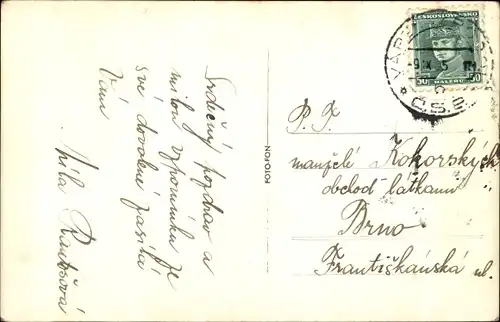 Srdečný pozdrav a
milou vzpomínku ze
své dovolené zasílá
Vám
Míla
FOTOFON
ČESKOSLOVENSKO
50 HALÉŘŮ 50
Č.S.R.
P. T.
manželé Kokorských
obchod látkami
Brno
Františkánská ul.